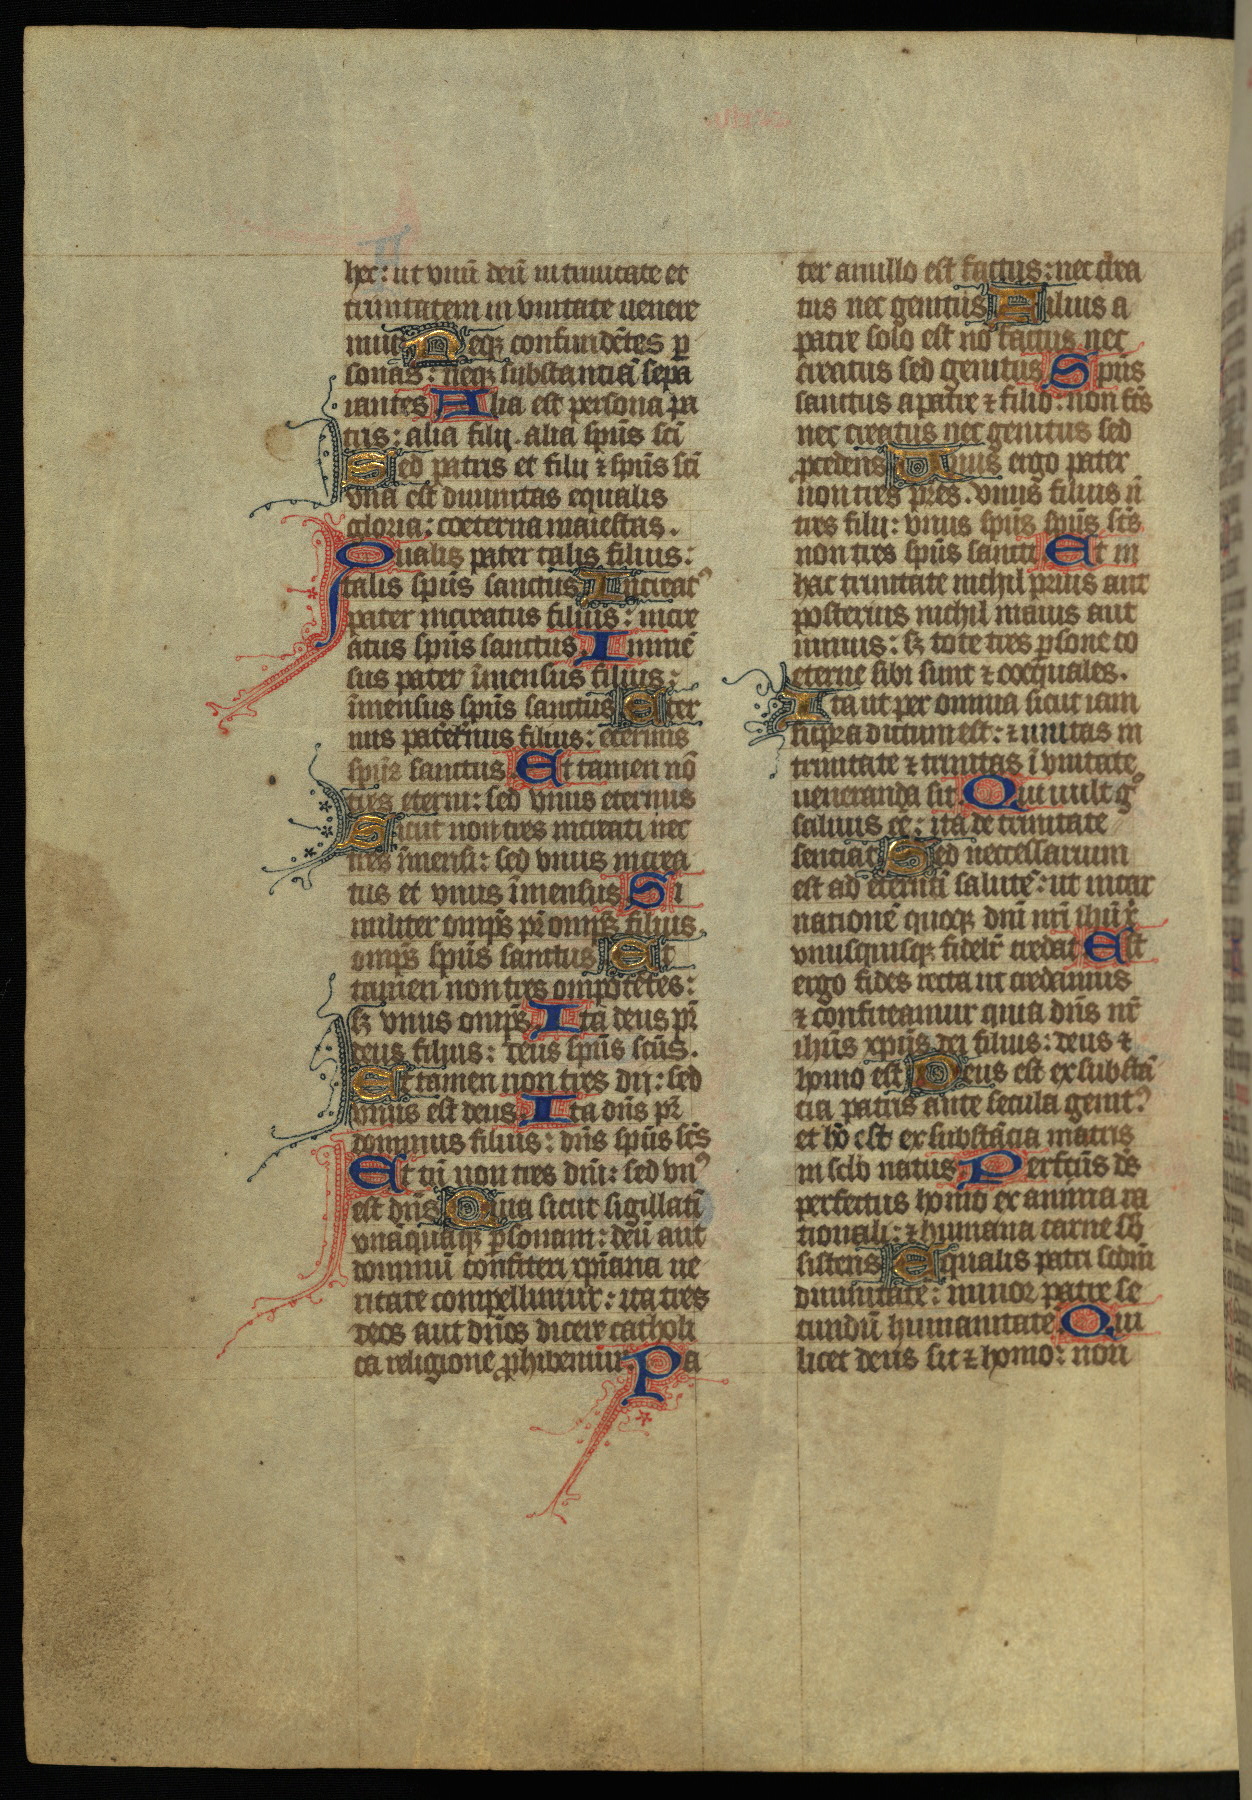 hec: ut vnū deū in trinitate et
trinitatem in vnitate uenere
mur Neqꝫ confundētes ꝑ
sonas: neqꝫ substantiā sepa
rantes Alia est persona pa
tris: alia filij. alia spūs scī
Sed patris et filij ⁊ spūs scī
vna est diuinitas equalis
gloria: coeterna maiestas.
Qualis pater talis filius:
talis spūs sanctus Increatꝰ
pater increatus filius: incre
atus spūs sanctus. Inmē
sus pater īmensus filius:
īmensus spūs sanctus Eter
nus pater eternus filius: eternus
spūs sanctus. Et tamen nō
tres eterni: sed vnus eternus
Sicut non tres increati nec
tres īmensi: sed vnus increa
tus et vnus īmensus Si
militer omp̄s pr̄ omp̄s filius.
omp̄s spūs sanctus Et
tamen non tres omp̄otētes:
sꝫ vnus omp̄s. Ita deus pr̄
deus filius: deus spūs scūs.
Et tamen non tres dii: sed
vnus est deus. Ita dn̄s pr̄
dominus filius: dn̄s spūs scs̄
Et tn̄ non tres dn̄i: sed vnꝰ
est dn̄s Quia sicut sigillatī
vnaquāqꝫ ꝑsonam: deū aut
dominū confiteri xp̄iana ue
ritate compellimur: ita tres
deos aut dn̄os dicere catholi
ca religione ꝓhibemur. Pa
ter a nullo est factus: nec crea
tus nec genitus Filius a
patre solo est nō factus nec
creatus sed genitus Spūs
sanctus a patre ⁊ filio: non fc̄s
nec creatus nec genitus sed
ꝓcedens Unus ergo pater
non tres pr̄es. vnus filius n̄
tres filij: vnus spūs spūs scs̄
non tres spūs sancti Et in
hac trinitate nichil prius aut
posterius nichil maius aut
minus: sꝫ tote tres ꝑsone co
eterne sibi sunt ⁊ coequales.
Ita ut per omnia sicut iam
supra dictum est: ⁊ unitas in
trinitate ⁊ trinitas ī vnitate
ueneranda sit. Qui uult gͦ
saluus eē: ita de trinitate
sentiat Sed neccessarium
est ad eternā salutē: ut incar
nationē quoqꝫ dn̄i nr̄i ihū x̄
vnusquisqꝫ fidelr̄ credat Est
ergo fides recta ut credamus
⁊ confiteamur quia dn̄s nr̄
ihūs xp̄us dei filius: deus ⁊
homo est Deus est ex substā
cia patris ante secula genitꝰ
et hō est ex substācia matris
in sc̄lo natus Perfectus ds̄
perfectus homo ex anima ra
tionali: ⁊ humana carne sb̄
sistens Equalis patri scdm̄
diuinitatē: minor patre se
cundū humanitatē Qui
licet deus sit ⁊ homo: non